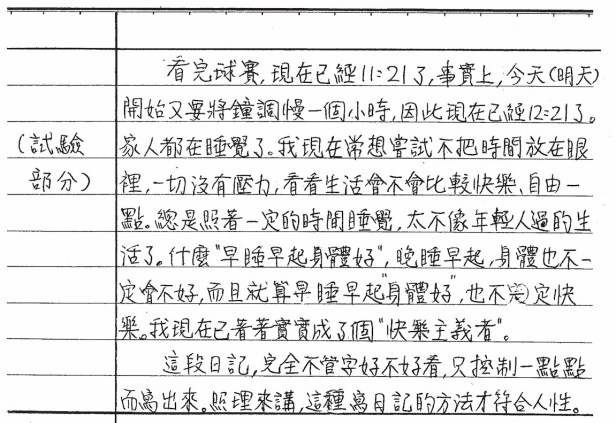 看完球賽,現在已經11:21了,事實上,今天(明天)
開始又要將鐘調慢一個小時,因此現在已經12:21了。
(試驗
家人都在睡覺了。我現在常想嘗試不把時間放在眼
部分)
裡,一切沒有壓力,看看生活會不會比較快樂、自由一
點。總是照著一定的時間睡覺,太不像年輕人過的生
活了。什麼"早睡早起身體好",晚睡早起,身體也不一
定會不好,而且就算早睡早起"身體好",也不定快
樂。我現在已著著實實成了個"快樂主義者"。
這段日記,完全不管字好不好看,只控制一點點
而寫出來。照理來講,這種寫日記的方法才符合人性。